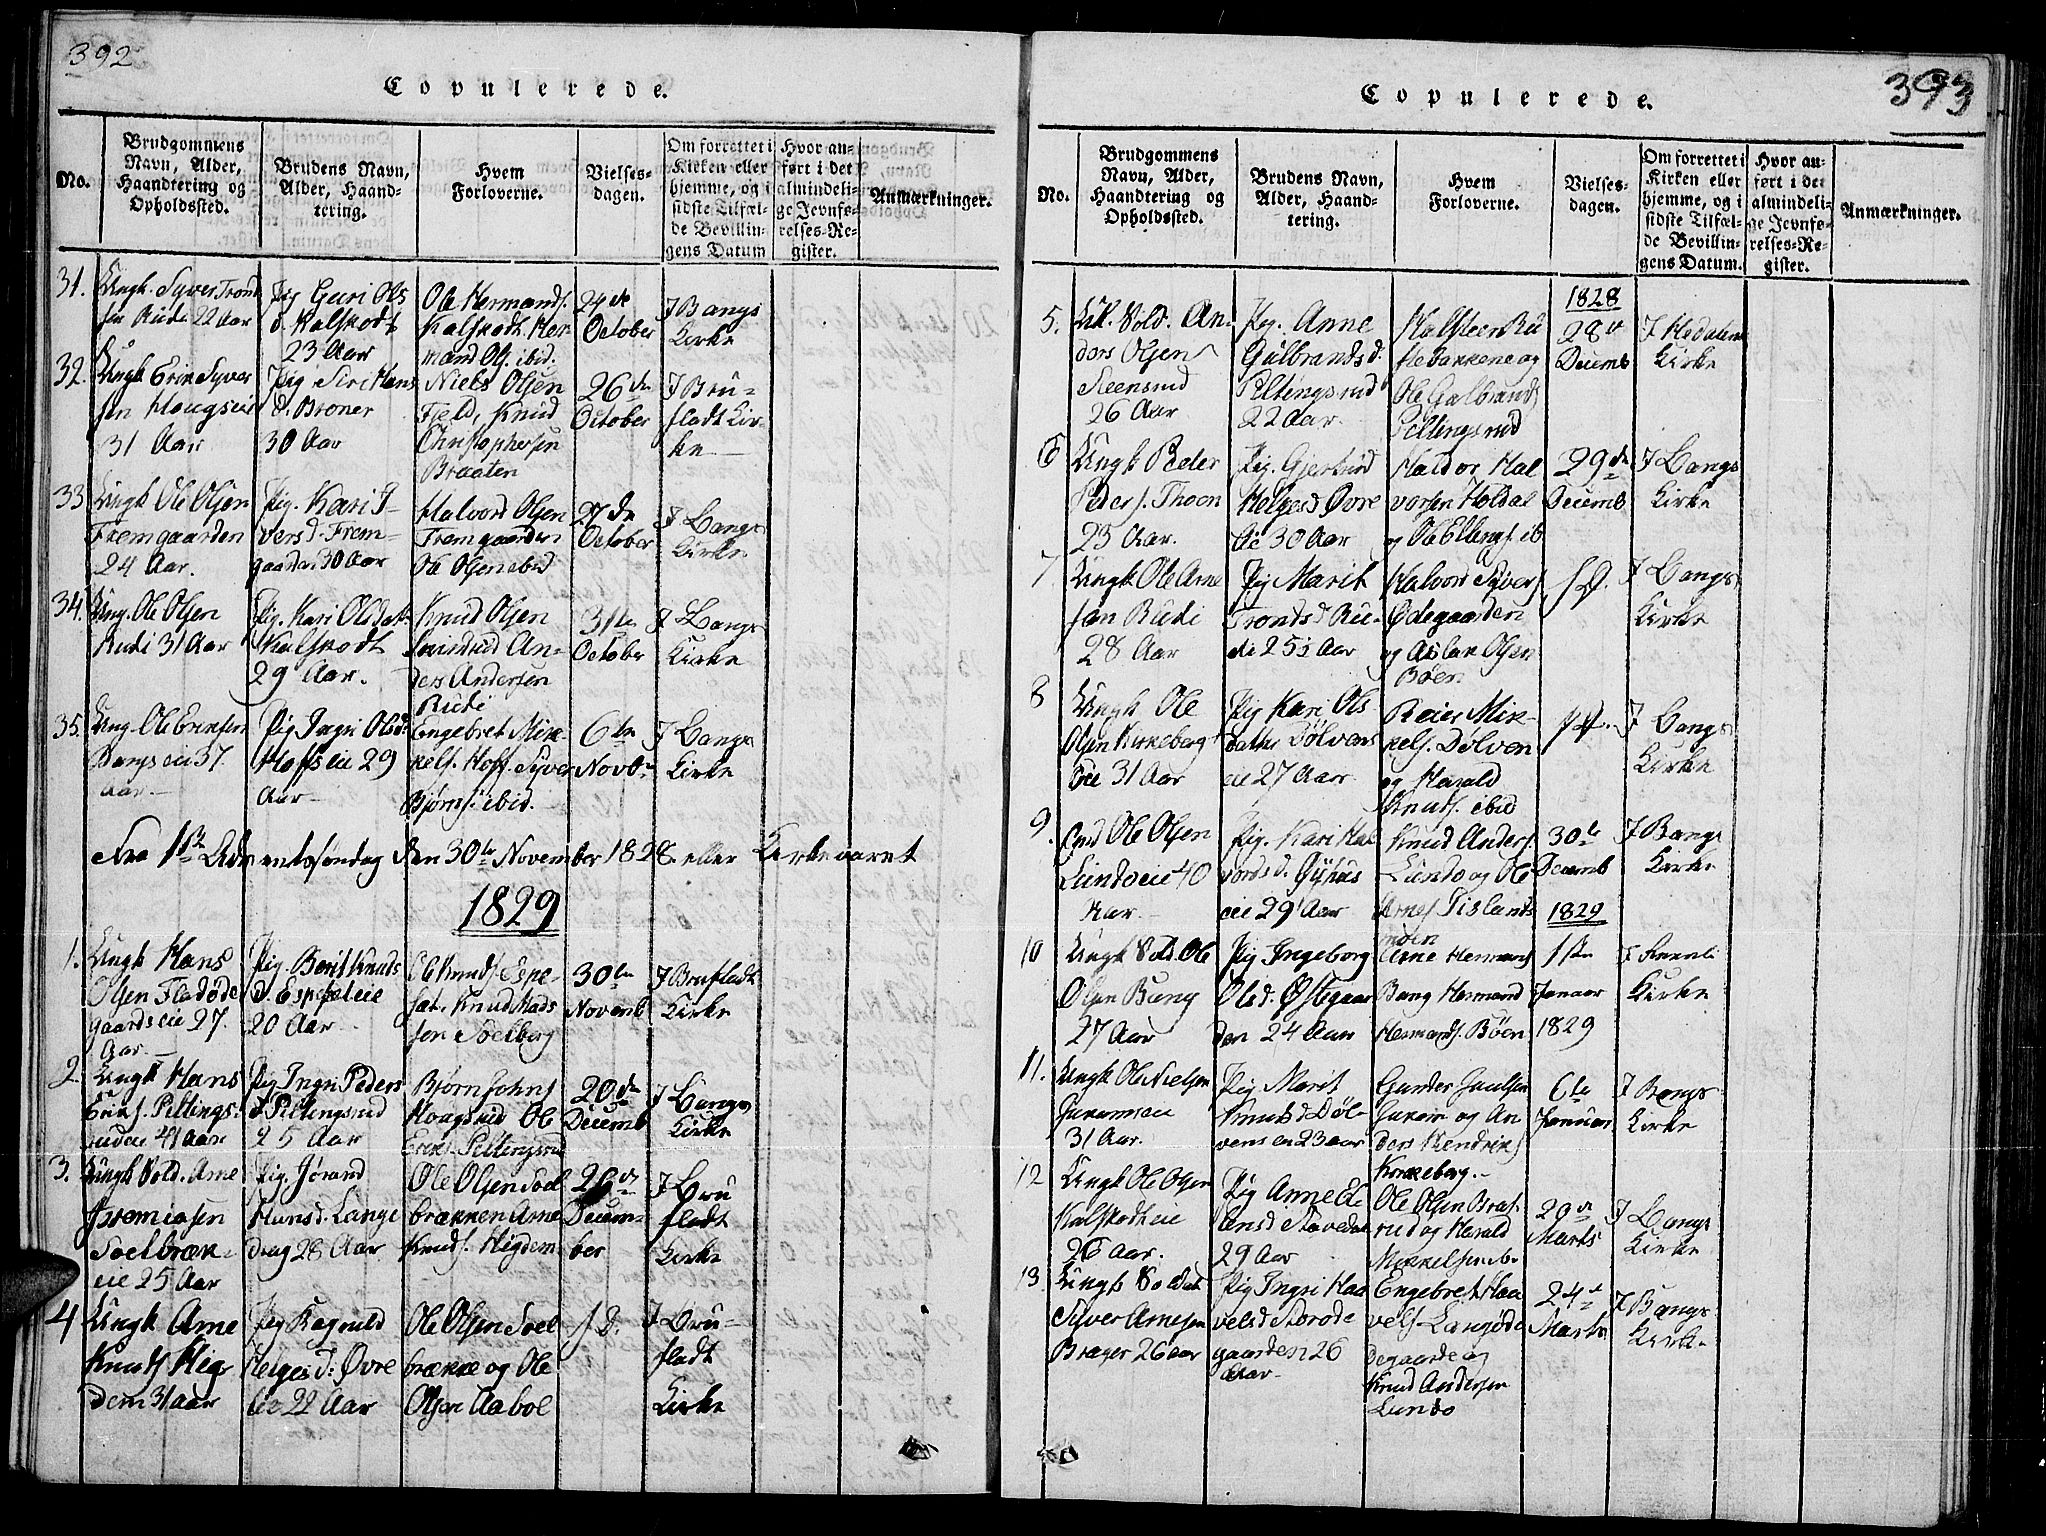 392
Copulerede.
No.
Brudgommens
Navn, Alder,
Haandtering og
Opholdssted.
Brudens Navn,
Alder, Haand-
tering.
Hvem
Forloverne.
Vielses-
dagen.
Om forrettet i
Kirken eller
hjemme, og i
sidste Tilfæl-
de Bevillin-
gens Datum
Hvor an-
ført i det
almindeli-
ge Jevnfø-
relses-Re-
gister.
Anmærkninger.
31.
Ungk. Syver Trond
sen Rudi 22 Aar
Pig Guri Ols
d. Kalskodt
23 Aar
Ole Hermands.
Kalskodt Her
mand Ols. ibid.
24de
October
I Bangs
Kirke
32.
Ungk Erik Syver
sen Hougseie
31 Aar
Pig Siri Hans
d. Broner
30 Aar
Niels Olsen
Fjeld, Knud
Christophersen
Braaten
26de
October
I Bru-
fladt Kir
ke
33
Ungk Ole Olsen
Fremgaarden
24 Aar.
Pig. Kari I-
versd. Frem-
gaarden 30 Aar
Halvord Olsen
Fremgaarden
Ole Olsen ibid
27de
October
I Bangs
Kirke
34.
Ung. Ole Olsen
Rudi 31 Aar
Pig. Kari Olsdat.
Kalskodt
29 Aar.
Knud Olsen
An-
ders Andersen
Rudi
31te
October
I Bangs
Kirke
35.
Ung. Ole Eriksen
Bangs eie 37.
Aar.
Pig Ingri Olsd:
Hoffs eie 29
Aar
Engebret Mik
kels. Hoff. Syver
Bjørns. ibid.
6te
Novbr
I Bangs
Kirke
Fra 1ste Adventssøndag den 30te November 1828 eller Kirkeaaret
1829
1.
Ungk Hans
Olsen Fladøde
gaards eie 27.
Aar.
Pig. Berit Knuds
d. Espeseteie
20 Aar
Ole Knuds. Espe-
set. Knud Mads
sen Soelberg
30te
Novemb
I Brufladt
Kirke
2.
Ungk Hans
Eriks. Peltings-
rudeie 41 Aar
Pig Ingri Peders
d. Peltingsrud
25 Aar
Bjørn Johns
Hougsrud Ole
Eriks. Peltingsrud
20de
Decemb
I Bangs
Kirke
3.
Ungk Sold. Arne
Jeremiasen
Soelbræk-
eie 25 Aar
Pig. Jørand
Hansd. Lange
drag 28 Aar
Ole Olsen Soel
brækken Arne
Knuds. Higdem
26de
Decem-
ber
I Bru
fladt
Kirke
4
Ungk Arne
Knuds Hig
dem 31 aar
Pig Ragnild
Helges d: Øvre
lie 22 Aar
Ole Olsen Soel
brække og Ole
Olsen Aabol
s. D.
I Bru-
fladt
Kirke
393
Copulerede.
No.
Brudgommens
Navn, Alder,
Haandtering og
Opholdssted.
Brudens Navn,
Alder, Haand-
tering.
Hvem
Forloverne.
Vielses-
dagen.
Om forrettet i
Kirken eller
hjemme, og i
sidste Tilfæl-
de Bevillin-
gens Datum.
Hvor an-
ført i det
almindeli-
ge Jevnfø-
relses-Re-
gister.
Anmærkninger.
5.
Sold. An-
ders Olsen
Steensrud
26 Aar
Pig. Anne
Gulbrandsd.
Peltingsrud
22 Aar.
Halsteen Ru
stebakkene og
Ole Gulbrands
Peltingsrud
1828
28de
Decemb
I Hedalens
Kirke
6
Ungk Peder
Peders. Thoen
25 Aar.
Pig. Gjertrud
Helgesd Øvre
lie 30 Aar
Haldor Hal
vorsen Holdal
og Ole Ellings. ib
29de
Decemb
I Bangs
Kirke
7
Ungk Ole Arne
sen Rudi
28 Aar
Pig Marit
Trondsd Ru-
di 25 Aar
Halvord Syvers
Ødegaarden
og Aslak Olsen
Bøen
s. D.
I Bangs
Kirke
8
Ungk Ole
Olsen Kirkeberg
eie 31 Aar
Pig Kari Ols
datter Dølvens
eie 27 Aar
Reier Mik-
kels. Dølven
og Harald
Knuds. ibid
I Bangs
Kirke
9.
Ole Olsen
Lundeeie 40
Aar.
Pig. Kari Hal
vords d.
eie 29 Aar
Knud Anders.
Lunde og Ole
Arnes Tislands
moen
30te
Decemb
I Bangs
Kirke
10
Ungk Sold. Ole
Olsen Bang
27 Aar
Pig Ingeborg
Olsd: Østegaar
den 24 Aar
Arne Hermans
Bang Hermand
Hermands. Bøen
1829
1ste
Januar
1829
I
Kirke
11.
Ungk Ole Nielsen
Jukameie
31 Aar.
Pig Marit
Knudsd Døl-
vens eie 23 aar
Gunder Paulsen
Jukam og An
ders Hendriks
Kirkeberg.
6te
Januar
I Bangs
Kirke
12
Ungk Ole Olsen
Kalskodteie
26 Aar.
Pig Anne El
lensd Stavedal
29 Aar
Ole Olsen Brat
rud og Harald
Mikkelsen ib.
29de
Marts
I Bangs
Kirke
13
Ungk Soldat
Syver Arnesen
Bræger 26 aar
Pig Ingri Haa
velsd Storøde
gaarden 26
Aar
Engebret Haa
vels Langøde
degaarde og
Knud Andersen
Lunde
24de
Marts
I Bangs
Kirke